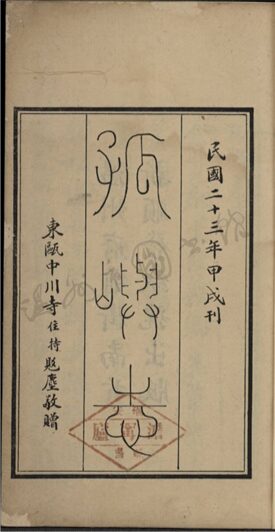 民國二十三年甲戌刊
孤嶼志
東甌中川寺住持慰塵敬贈